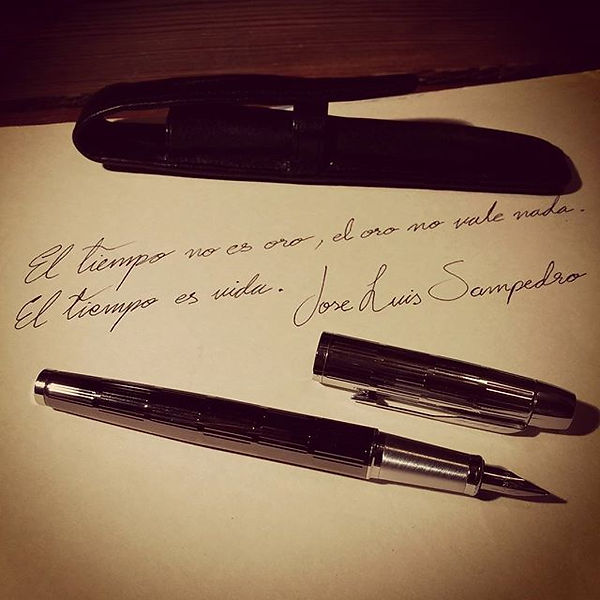 El tiempo no es oro, el oro no vale nada.
El tiempo es vida. Jose Luis Sampedro